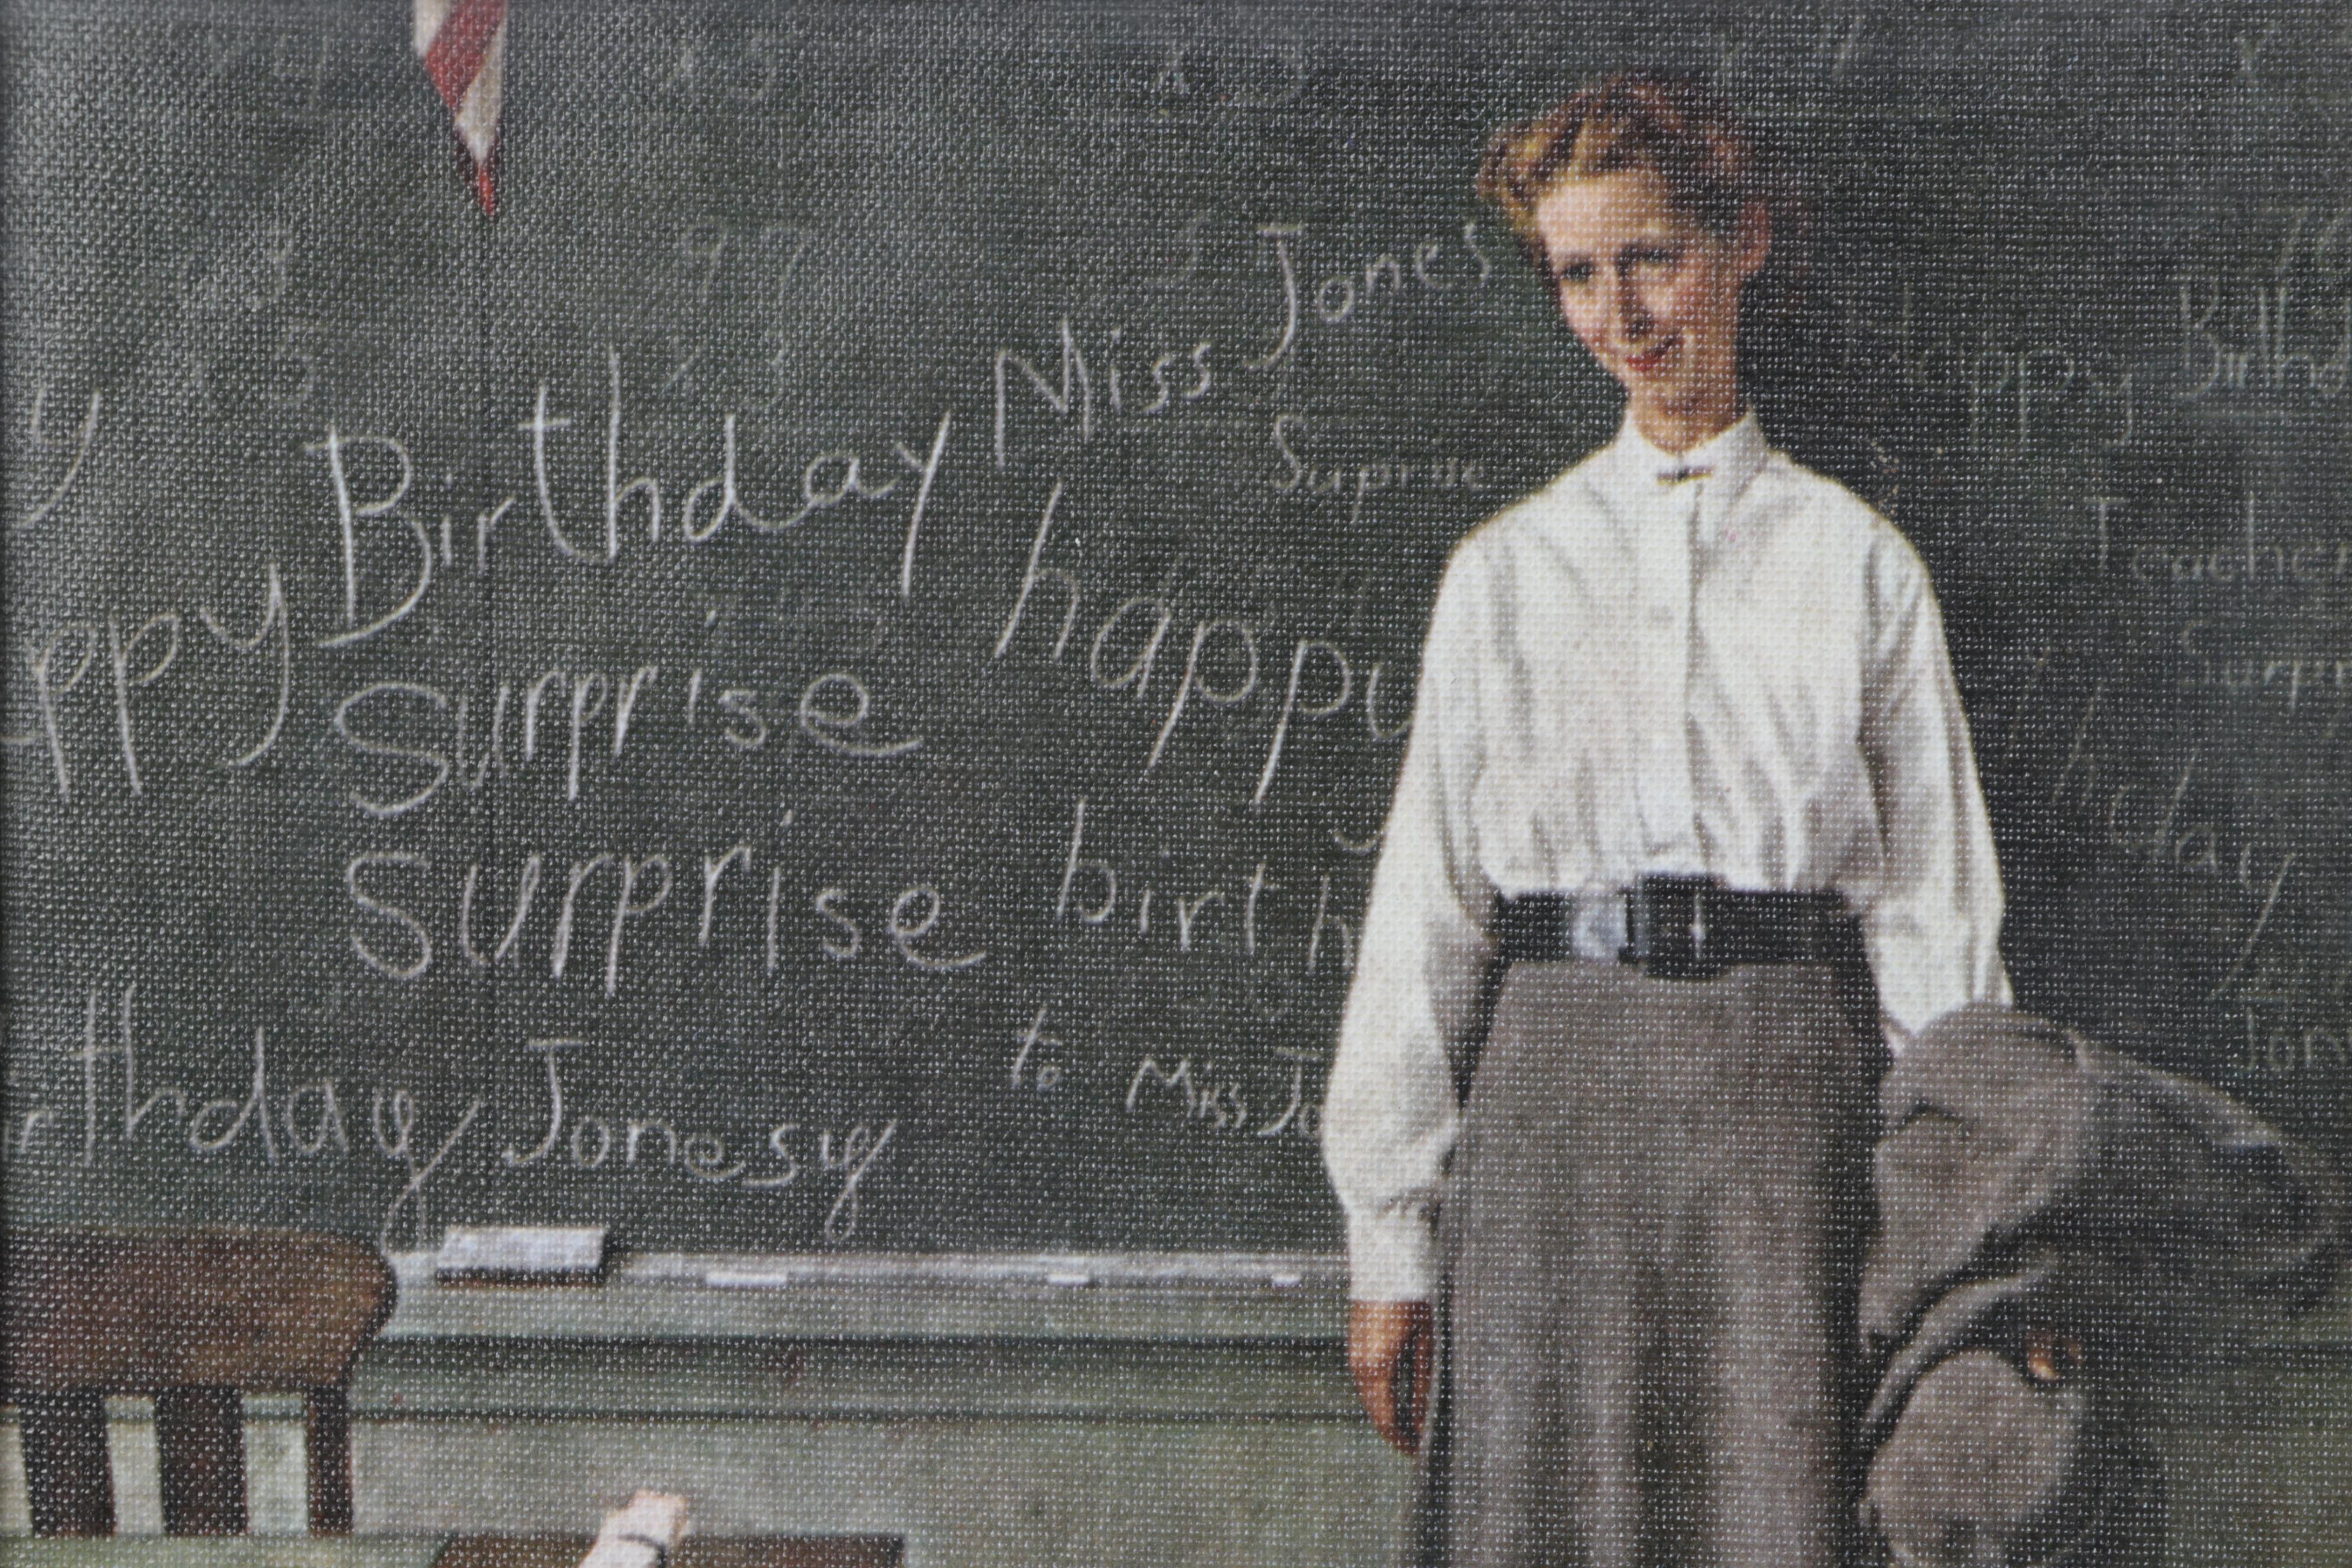 y
Birthday Miss Jones
Suprise
ppy
Surprise
happy
Surprise
birth
rthday Jonesy
to Miss Jo
ppy Birthd
Teacher
Surpr
hday
Jon